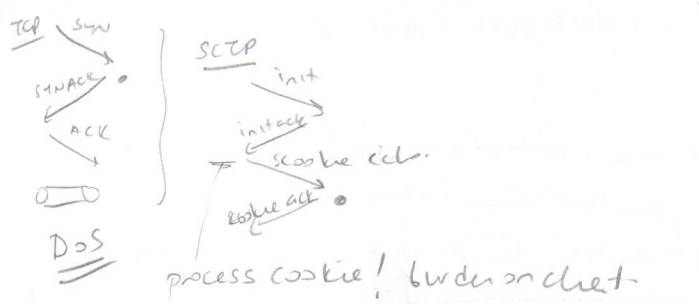 TCP SYN
SYNACK
ACK
DoS
SCTP
init
initack
cookie echo.
cookie ack
process cookie! burden on client